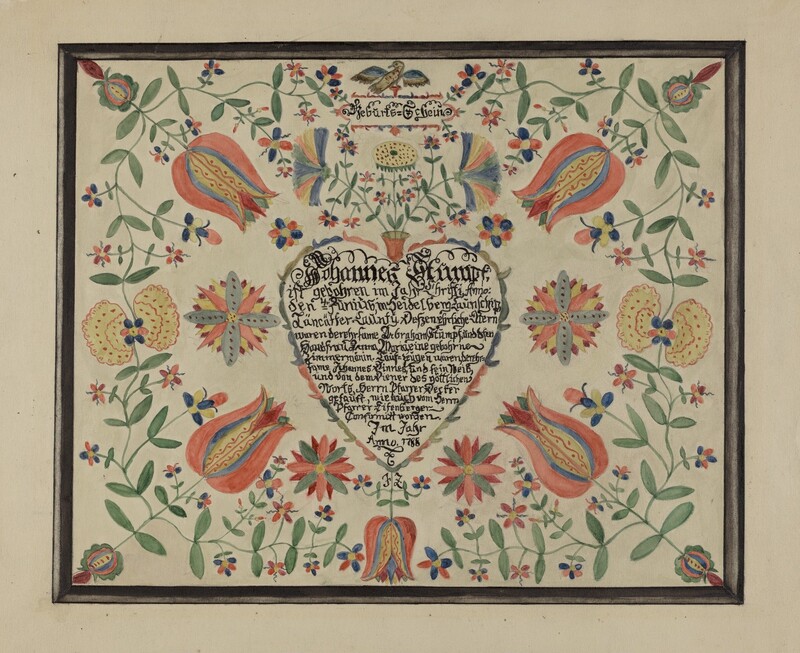 Geburts=Schein
Johannes Stumpf
ist gebohren im Jahr Christi, Anno:
den Juni in Heidelberg Taunschip
Läncäster Caunty, Deßen ehrliche Eltern
waren der ehrsame Abraham Stumpf, und deßen
Hausfrau, Anna Margreta eine gebohrne
Zimmermänin. Tauf-Zeugen waren der ehr-
same Johannes und sein Weib,
und von dem Diener des göttlichen
Worts, Herrn Pfarrer
getauft, wie auch vom Herrn
Pfarrer
Confirmirt worden.
Im Jahr
Anno, 1788